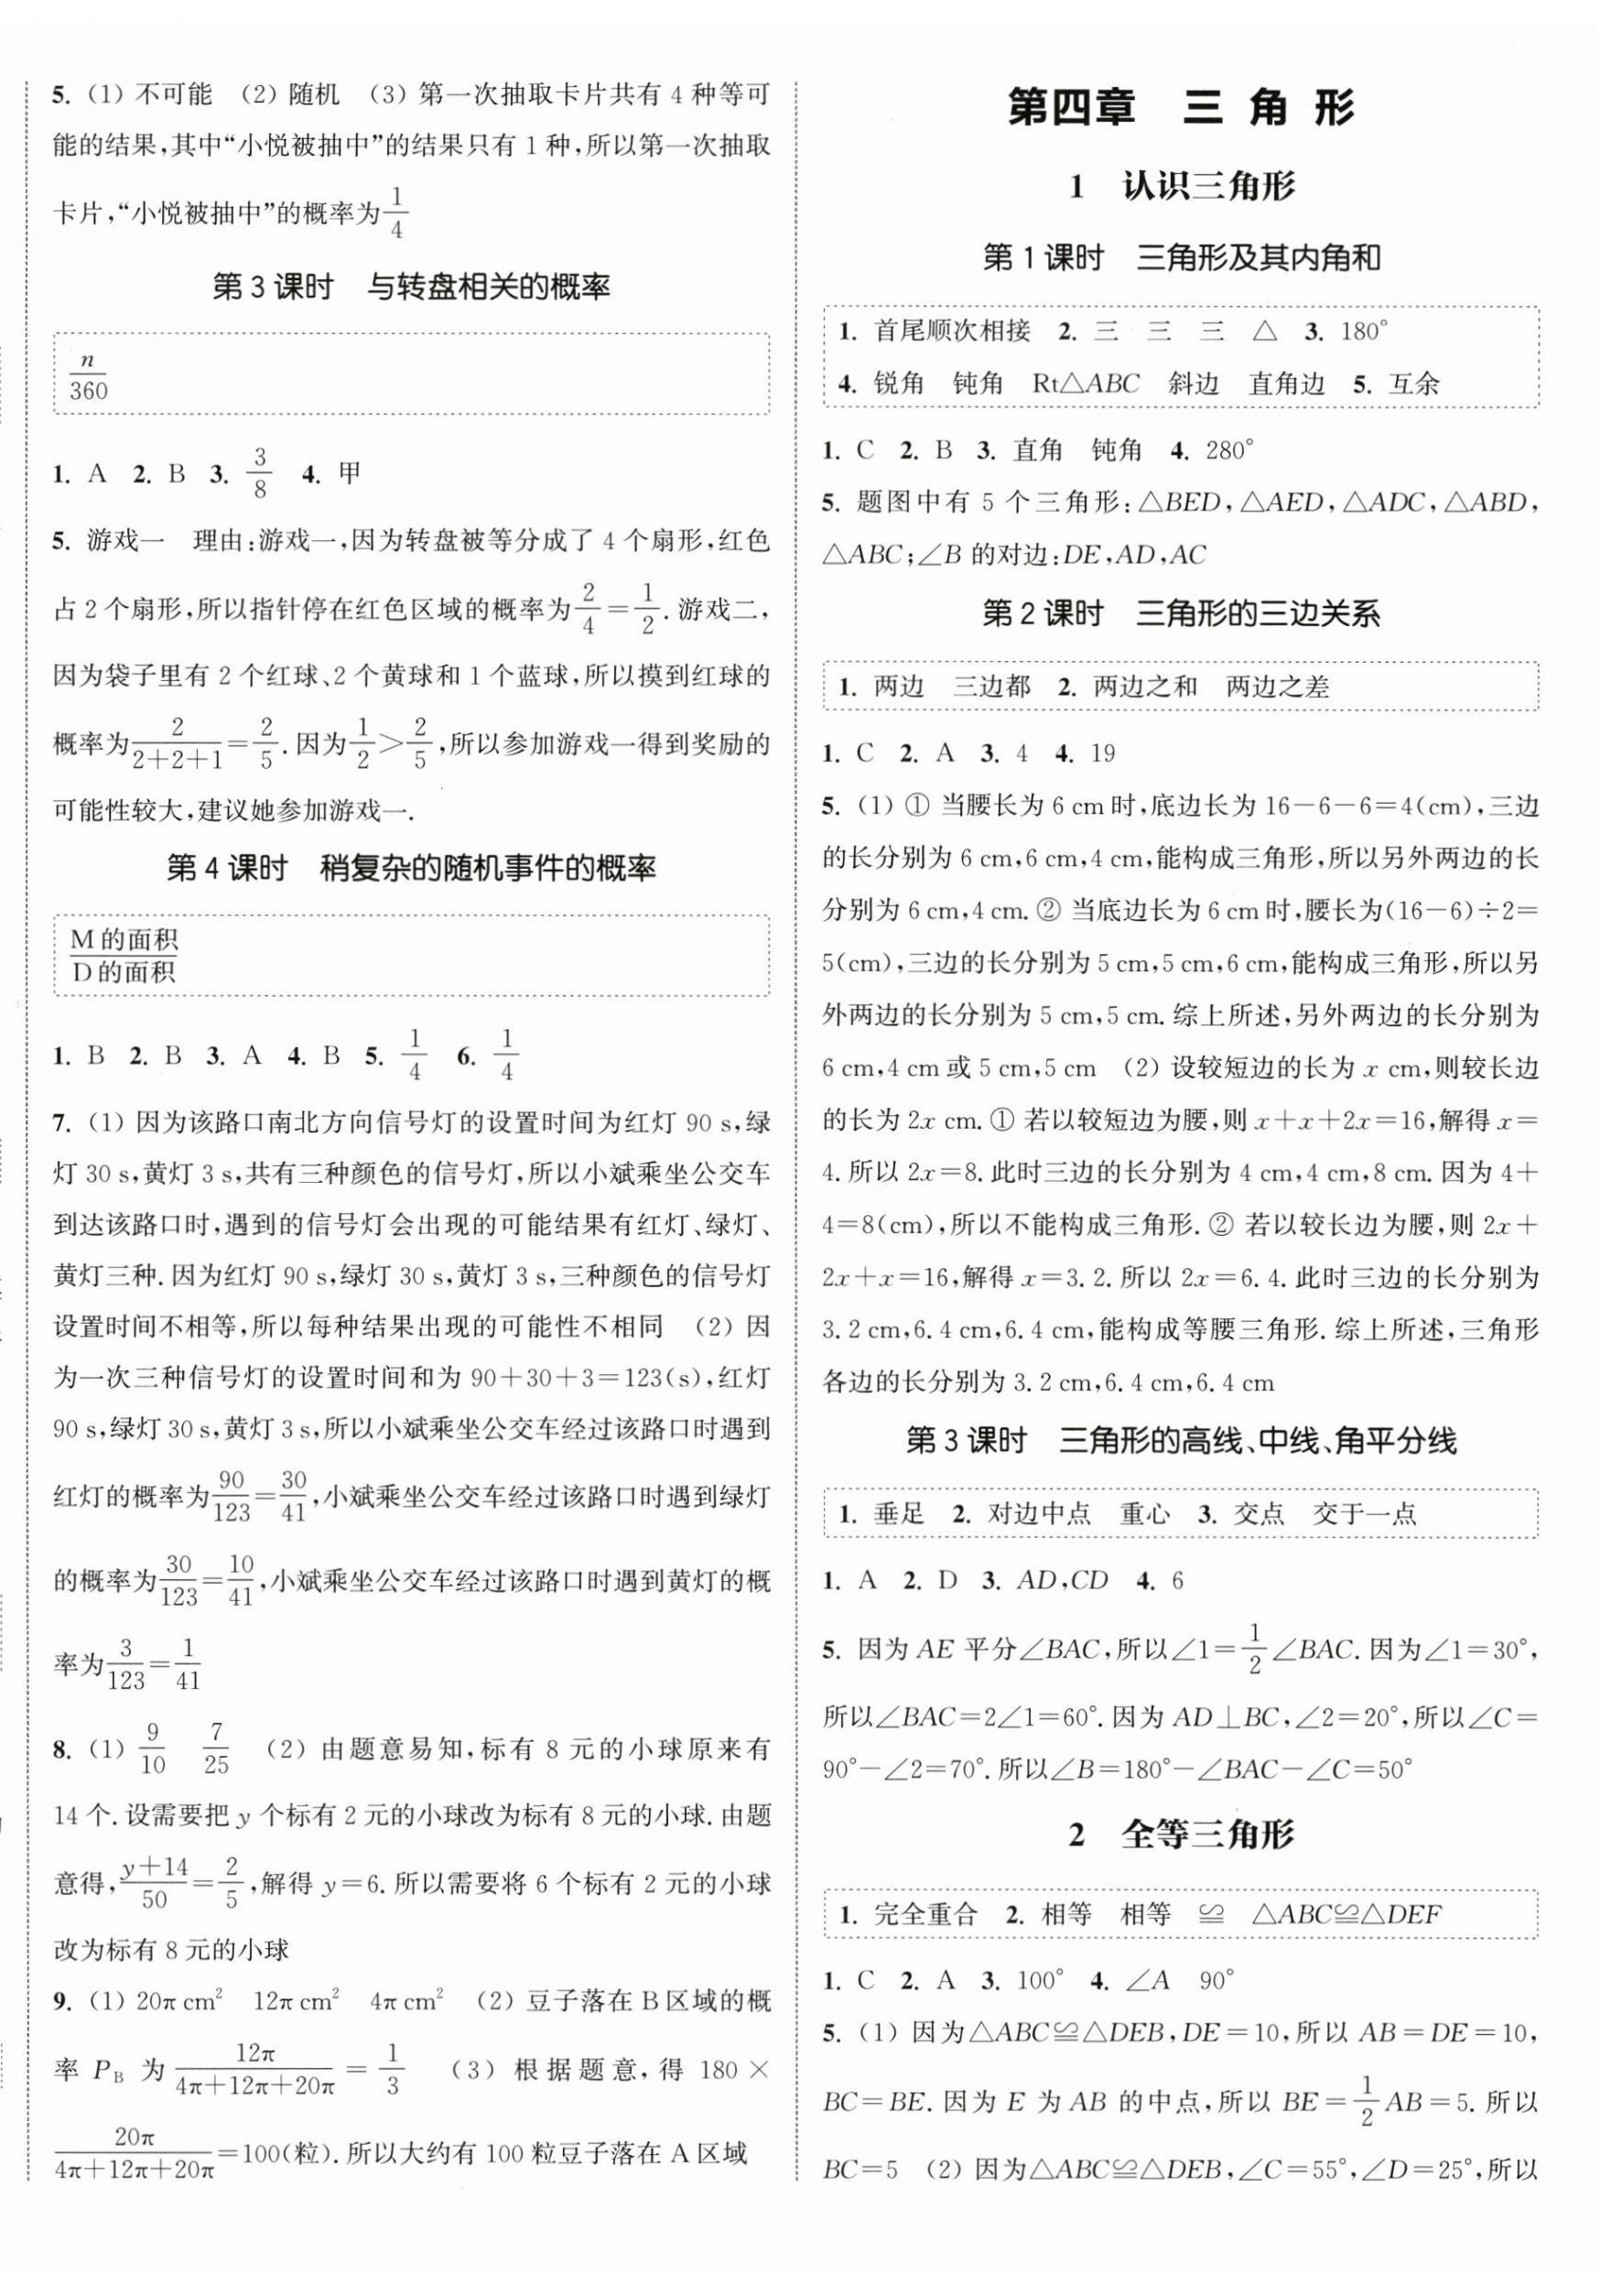 5. (1) 不可能 (2) 随机 (3) 第一次抽取卡片共有 4 种等可
能的结果,其中“小悦被抽中”的结果只有 1 种,所以第一次抽取
卡片,“小悦被抽中”的概率为$\frac{1}{4}$
第 3 课时 与转盘相关的概率
$\frac{n}{360}$
1. A 2. B 3. $\frac{3}{8}$ 4. 甲
5. 游戏一 理由:游戏一,因为转盘被等分成了 4 个扇形,红色
占 2 个扇形,所以指针停在红色区域的概率为$\frac{2}{4}=\frac{1}{2}$.游戏二,
因为袋子里有 2 个红球、2 个黄球和 1 个蓝球,所以摸到红球的
概率为$\frac{2}{2+2+1}=\frac{2}{5}$.因为$\frac{1}{2}>\frac{2}{5}$,所以参加游戏一得到奖励的
可能性较大,建议她参加游戏一.
第 4 课时 稍复杂的随机事件的概率
$\frac{M 的面积}{D 的面积}$
1. B 2. B 3. A 4. B 5. $\frac{1}{4}$ 6. $\frac{1}{4}$
7. (1) 因为该路口南北方向信号灯的设置时间为红灯 90 s,绿
灯 30 s,黄灯 3 s,共有三种颜色的信号灯,所以小斌乘坐公交车
到达该路口时,遇到的信号灯会出现的可能结果有红灯、绿灯、
黄灯三种.因为红灯 90 s,绿灯 30 s,黄灯 3 s,三种颜色的信号灯
设置时间不相等,所以每种结果出现的可能性不相同 (2) 因
为一次三种信号灯的设置时间和为 90+30+3=123(s),红灯
90 s,绿灯 30 s,黄灯 3 s,所以小斌乘坐公交车经过该路口时遇到
红灯的概率为$\frac{90}{123}=\frac{30}{41}$,小斌乘坐公交车经过该路口时遇到绿灯
的概率为$\frac{30}{123}=\frac{10}{41}$,小斌乘坐公交车经过该路口时遇到黄灯的概
率为$\frac{3}{123}=\frac{1}{41}$
8. (1) $\frac{9}{10}$ $\frac{7}{25}$ (2) 由题意易知,标有 8 元的小球原来有
14 个.设需要把 y 个标有 2 元的小球改为标有 8 元的小球.由题
意得,$\frac{y+14}{50}=\frac{2}{5}$,解得 y=6.所以需要将 6 个标有 2 元的小球
改为标有 8 元的小球
9. (1) 20π cm² 12π cm² 4π cm² (2) 豆子落在 B 区域的概
率 $P_B$ 为 $\frac{12π}{4π+12π+20π}=\frac{1}{3}$ (3) 根据题意,得 180×
$\frac{20π}{4π+12π+20π}$=100(粒).所以大约有 100 粒豆子落在 A 区域
第四章 三角形
1 认识三角形
第 1 课时 三角形及其内角和
1. 首尾顺次相接 2. 三 三 三 △ 3. 180°
4. 锐角 钝角 Rt△ABC 斜边 直角边 5. 互余
1. C 2. B 3. 直角 钝角 4. 280°
5. 题图中有 5 个三角形:△BED,△AED,△ADC,△ABD,
△ABC;∠B 的对边:DE,AD,AC
第 2 课时 三角形的三边关系
1. 两边 三边都 2. 两边之和 两边之差
1. C 2. A 3. 4 4. 19
5. (1) ① 当腰长为 6 cm 时,底边长为 16-6-6=4(cm),三边
的长分别为 6 cm,6 cm,4 cm,能构成三角形,所以另外两边的长
分别为 6 cm,4 cm. ② 当底边长为 6 cm 时,腰长为(16-6)÷2=
5(cm),三边的长分别为 5 cm,5 cm,6 cm,能构成三角形,所以另
外两边的长分别为 5 cm,5 cm. 综上所述,另外两边的长分别为
6 cm,4 cm 或 5 cm,5 cm (2) 设较短边的长为 x cm,则较长边
的长为 2x cm. ① 若以较短边为腰,则 x+x+2x=16,解得 x=
4.所以 2x=8.此时三边的长分别为 4 cm,4 cm,8 cm. 因为 4+
4=8(cm),所以不能构成三角形. ② 若以较长边为腰,则 2x+
2x+x=16,解得 x=3.2.所以 2x=6.4.此时三边的长分别为
3.2 cm,6.4 cm,6.4 cm,能构成等腰三角形.综上所述,三角形
各边的长分别为 3.2 cm,6.4 cm,6.4 cm
第 3 课时 三角形的高线、中线、角平分线
1. 垂足 2. 对边中点 重心 3. 交点 交于一点
1. A 2. D 3. AD,CD 4. 6
5. 因为 AE 平分∠BAC,所以∠1=$\frac{1}{2}$∠BAC.因为∠1=30°,
所以∠BAC=2∠1=60°.因为 AD⊥BC,∠2=20°,所以∠C=
90°-∠2=70°.所以∠B=180°-∠BAC-∠C=50°
2 全等三角形
1. 完全重合 2. 相等 相等 ≌ △ABC≌△DEF
1. C 2. A 3. 100° 4. ∠A 90°
5. (1) 因为△ABC≌△DEB,DE=10,所以 AB=DE=10,
BC=BE.因为 E 为 AB 的中点,所以 BE=$\frac{1}{2}$AB=5.所以
BC=5 (2) 因为△ABC≌△DEB,∠C=55°,∠D=25°,所以